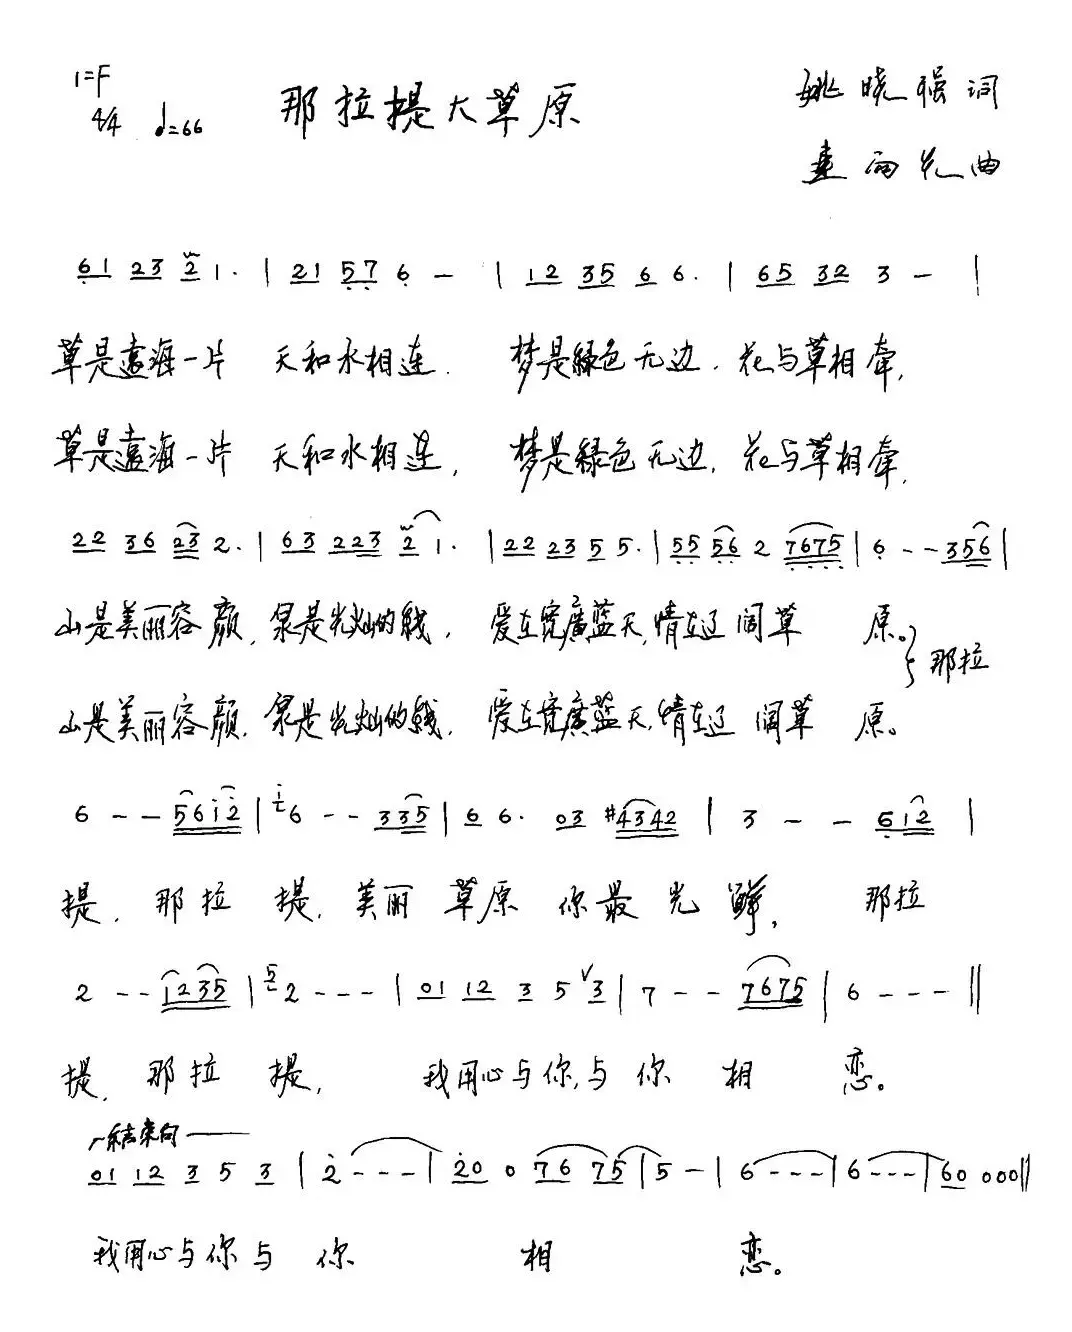 1=F
4/4 ♩=66 那拉提大草原 姚晓强词
雨 曲
61 23 2 1· | 21 57 6 - | 12 35 6 6· | 65 32 3 - |
草是遠海一片 天和水相连. 梦是緑色无边. 花与草相牵,
草是遠海一片 天和水相连, 梦是緑色无边, 花与草相牵,
22 36 23 2· | 63 223 2 1· | 22 23 5 5· | 55 56 2 7675 | 6 - - 356 |
山是美丽容颜, 泉是光灿的钱, 爱在宽廣蓝天,情在辽阔草原。 那拉
山是美丽容颜, 泉是光灿的钱, 爱在宽廣蓝天,情在辽阔草原。
6 - - 5612 | 1 6 - - 335 | 6 6· 03 #4342 | 3 - - 612 |
提, 那拉提, 美丽草原你最光鲜, 那拉
2 - - 1235 | 5 2 - - - | 01 12 3 5 ∨3 | 7 - - 7675 | 6 - - - ‖
提, 那拉提, 我用心与你,与你相恋。
结束句
01 12 3 5 3 | 2 - - - | 20 0 76 75 | 5 - | 6 - - - | 6 - - - | 60 000 ‖
我用心与你与你相恋。